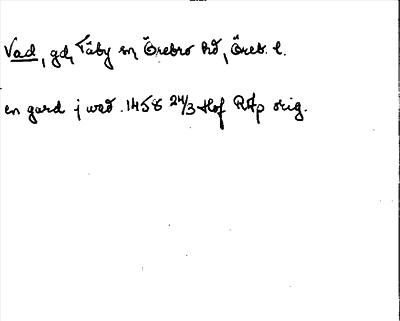 Vad, gd, Täby sn, Örebro hd, Öreb. l.
en gard j wad. 1458 24/3 Hof RAp orig.